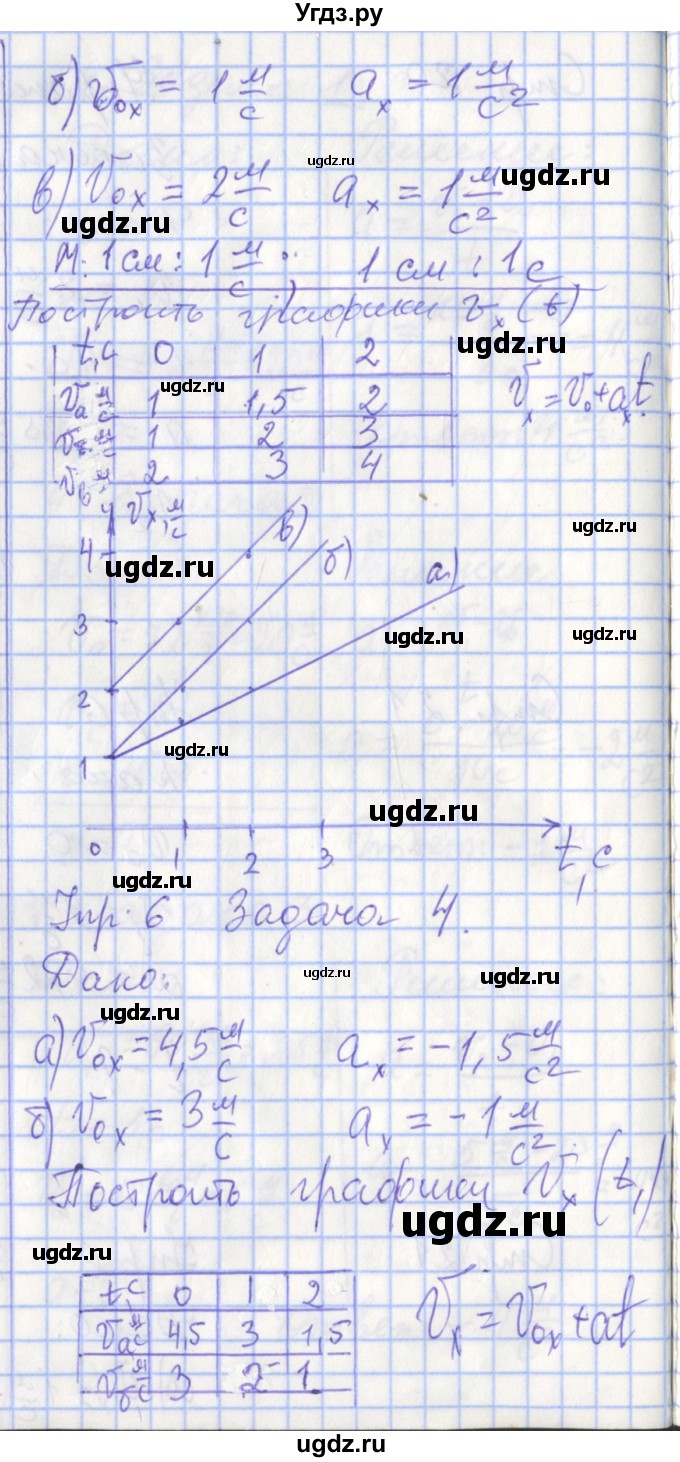 Угдз.ру
б) v₀ₓ = 1 м/с aₓ = 1 м/с²
ugdz.ru
ugdz.ru
в) v₀ₓ = 2 м/с aₓ = 1 м/с²
ugdz.ru
М: 1 см : 1 м/с ; 1 см : 1 с
Построить графики vₓ(t)
ugdz.ru
t, с 0 1 2
ugdz.ru
vа м/с 1 1,5 2 vₓ = v₀ + aₓt.
vб м/с 1 2 3
vв м/с 2 3 4
vₓ, м/с в)
ugdz.ru
4 б) а)
ugdz.ru
3 ugdz.ru ugdz.ru
2
ugdz.ru
1
ugdz.ru
0 1 2 3 t, с
ugdz.ru
Упр. 6 Задача 4.
Дано: ugdz.ru ugdz.ru
ugdz.ru
а) v₀ₓ = 4,5 м/с aₓ = -1,5 м/с²
б) v₀ₓ = 3 м/с aₓ = -1 м/с²
Построить графики vₓ(t)
ugdz.ru
ugdz.ru
t, с 0 1 2
vа м/с 4,5 3 1,5 vₓ = v₀ₓ + at
vб м/с 3 2 1
ugdz.ru